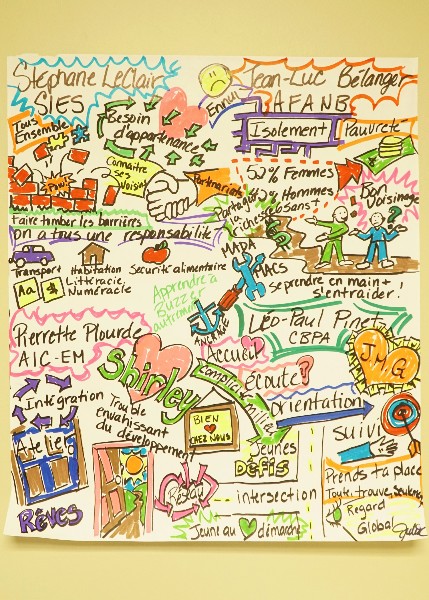 Stéphane LeClair
SIES
Tous
Ensemble
Besoin
d'appartenance
Ennui
Jean-Luc Bélanger
AFANB
Isolement
Pauvreté
Connaître
ses
voisins
Pow!
Partenariats
52% Femmes
Hommes
Partage
Richesse
65ans+
Bon
Voisinage
?
faire tomber les barrières
on a tous une responsabilité
Transport
Habitation
Sécurité alimentaire
Aa
Littéracie,
Numéracie
MADA
MACS
Se prendre en main +
s'entraider!
Apprendre à
Buzzer
autrement
ANCRAGE
Pierrette Plourde
AIC-EM
Shirley
Léo-Paul Pinet
CBPA
Accueil
écoute?
JMG
Intégration
Trouble
envahissant
du développement
Orientation
BIEN
CHEZ NOUS
Atelier
Rêves
Réseau
Jeunes
Défis
intersection
Jeune au démarche
Suivi
Prends ta place
Regard
Global